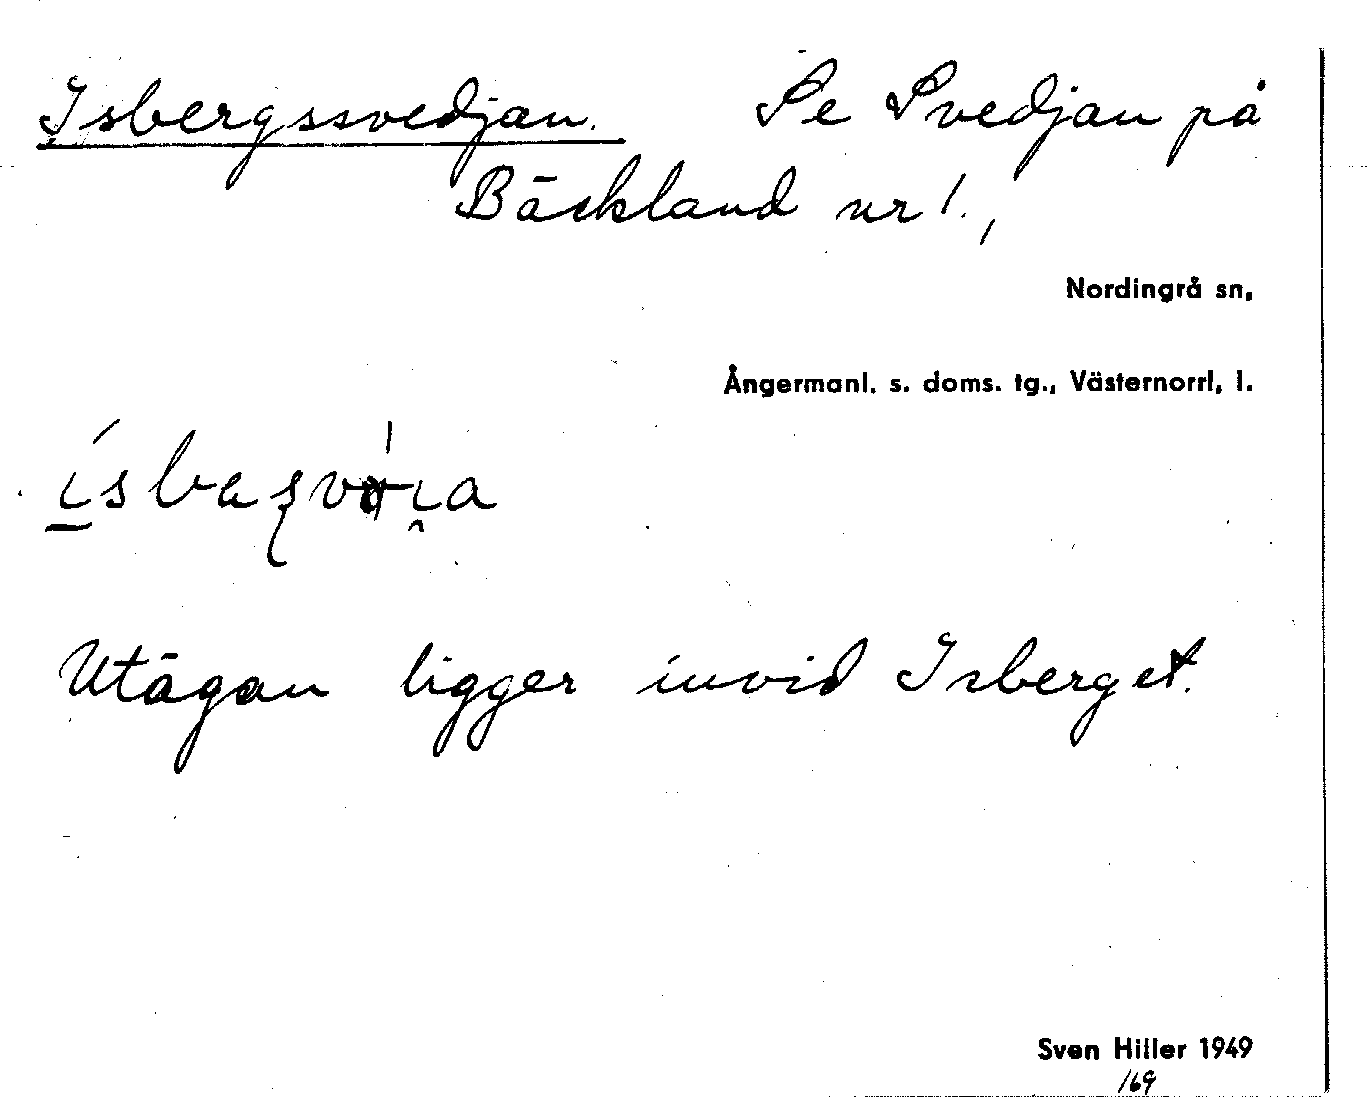 Isbergssvedjan. Se Svedjan på
Bäckland nr 1.,
Nordingrå sn,
Ångermanl. s. doms. tg., Västernorrl, l.
Utägan ligger invid Isberget.
Sven Hiller 1949
169